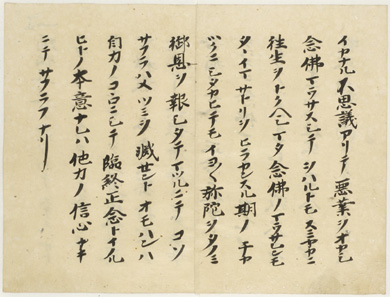 イカナル不思議アリテ悪業ヲオカシ
念佛マウサスシテヲハルトモスミヤカニ
往生ヲトクヘシマタ念佛ノマウサレンモ
タヽイマサトリヲヒラカンスル期ノチカ
ツクニシタカヒテモイヨ〱弥陀ヲタノミ
御恩ヲ報シタテマツルニテコソ
サフラハメツミヲ滅セントオモハンハ
自力ノコヽロニシテ臨終正念トイノル
ヒトノ本意ナレハ他力ノ信心ナキ
ニテサフラフナリ